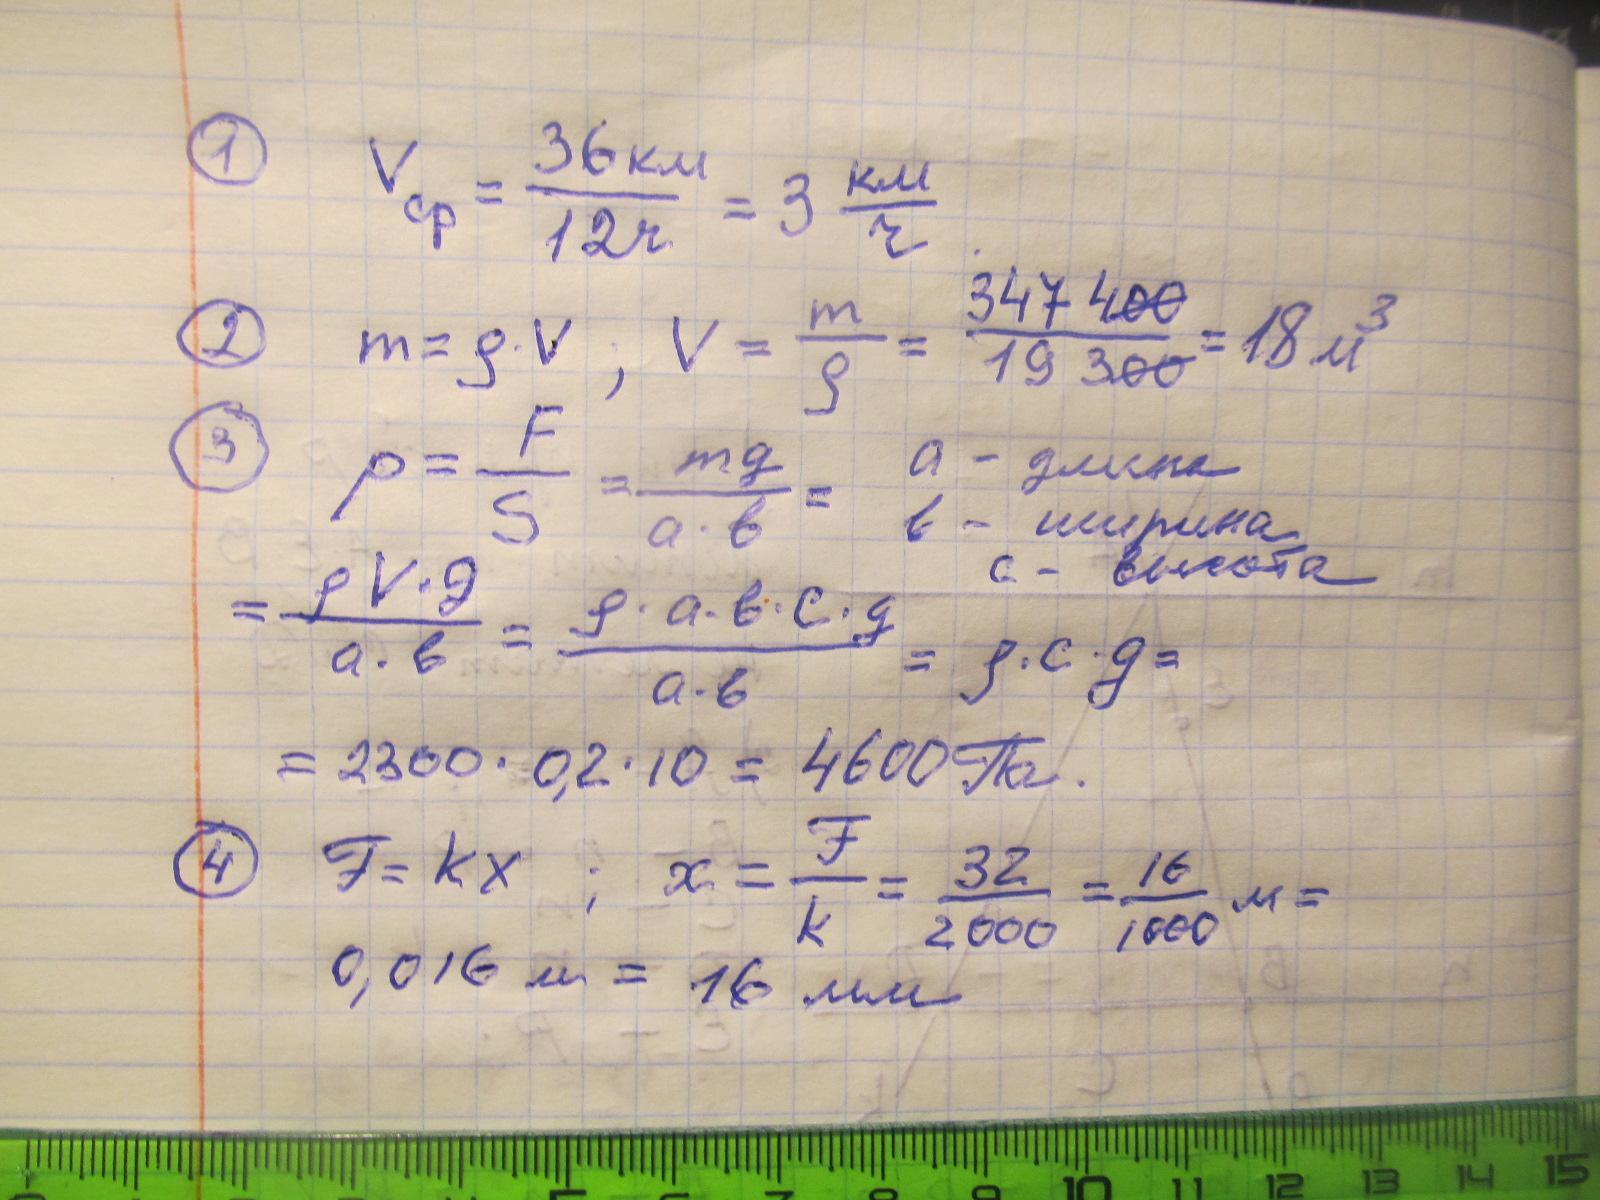 1 Vср = 36км/12ч = 3 км/ч
2 m = ρ·V ; V = m/ρ = 347 400/19 300 = 18 м³
3 p = F/S = mg/a·в = a - длина
в - ширина
c - высота
= ρV·g/a·в = ρ·a·в·c·g/a·в = ρ·c·g =
= 2300·0,2·10 = 4600 Па.
4 F = kx ; x = F/k = 32/2000 = 16/1000 м =
0,016 м = 16 мм
5 7 8 9 10 11 12 13 14 15